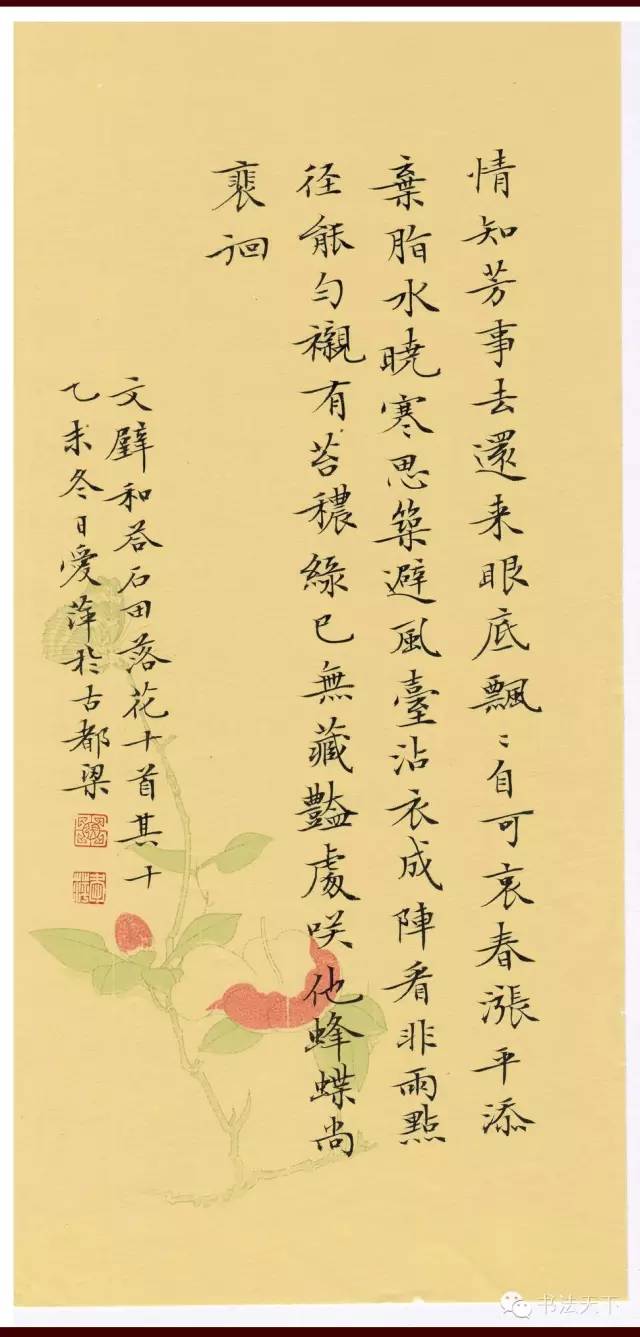 情知芳事去還来眼底飄〻自可哀春漲平添
棄脂水曉寒思築避風臺沾衣成陣看非雨點
径能勻襯有苔穠綠已無藏豔處咲他蜂蝶尚
裵徊
文壁和荅石田落花十首其十
乙未冬日愛萍於古都梁
书法天下